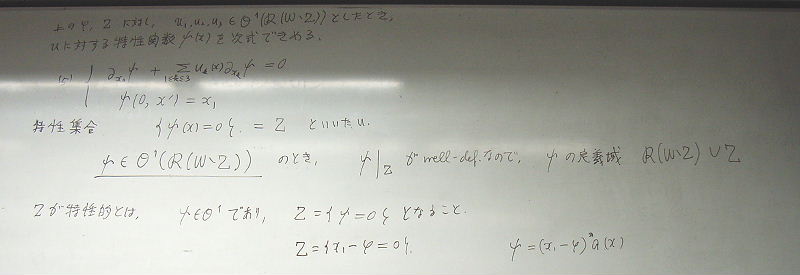 上の φ, Z に対し, u₁, u₂, u₃ ∈ Θ¹(R(W∖Z)) としたとき,
uに対する特性函数 ψ(x) を次式できめる.
(5) { ∂_{x₀}ψ + Σ_{1≤k≤3} u_k(x)∂_{x_k}ψ = 0
ψ(0, x') = x₁
特性集合 {ψ(x)=0} = Z といいたい.
ψ ∈ Θ¹(R(W∖Z)) のとき, ψ|_Z が well-def. なので, ψ の定義域 R(W∖Z) ∪ Z
Zが特性的とは, ψ∈Θ¹ であり, Z = {ψ=0} となること.
Z = {x₁-φ=0}. ψ = (x₁-φ)ⁿ a(x)